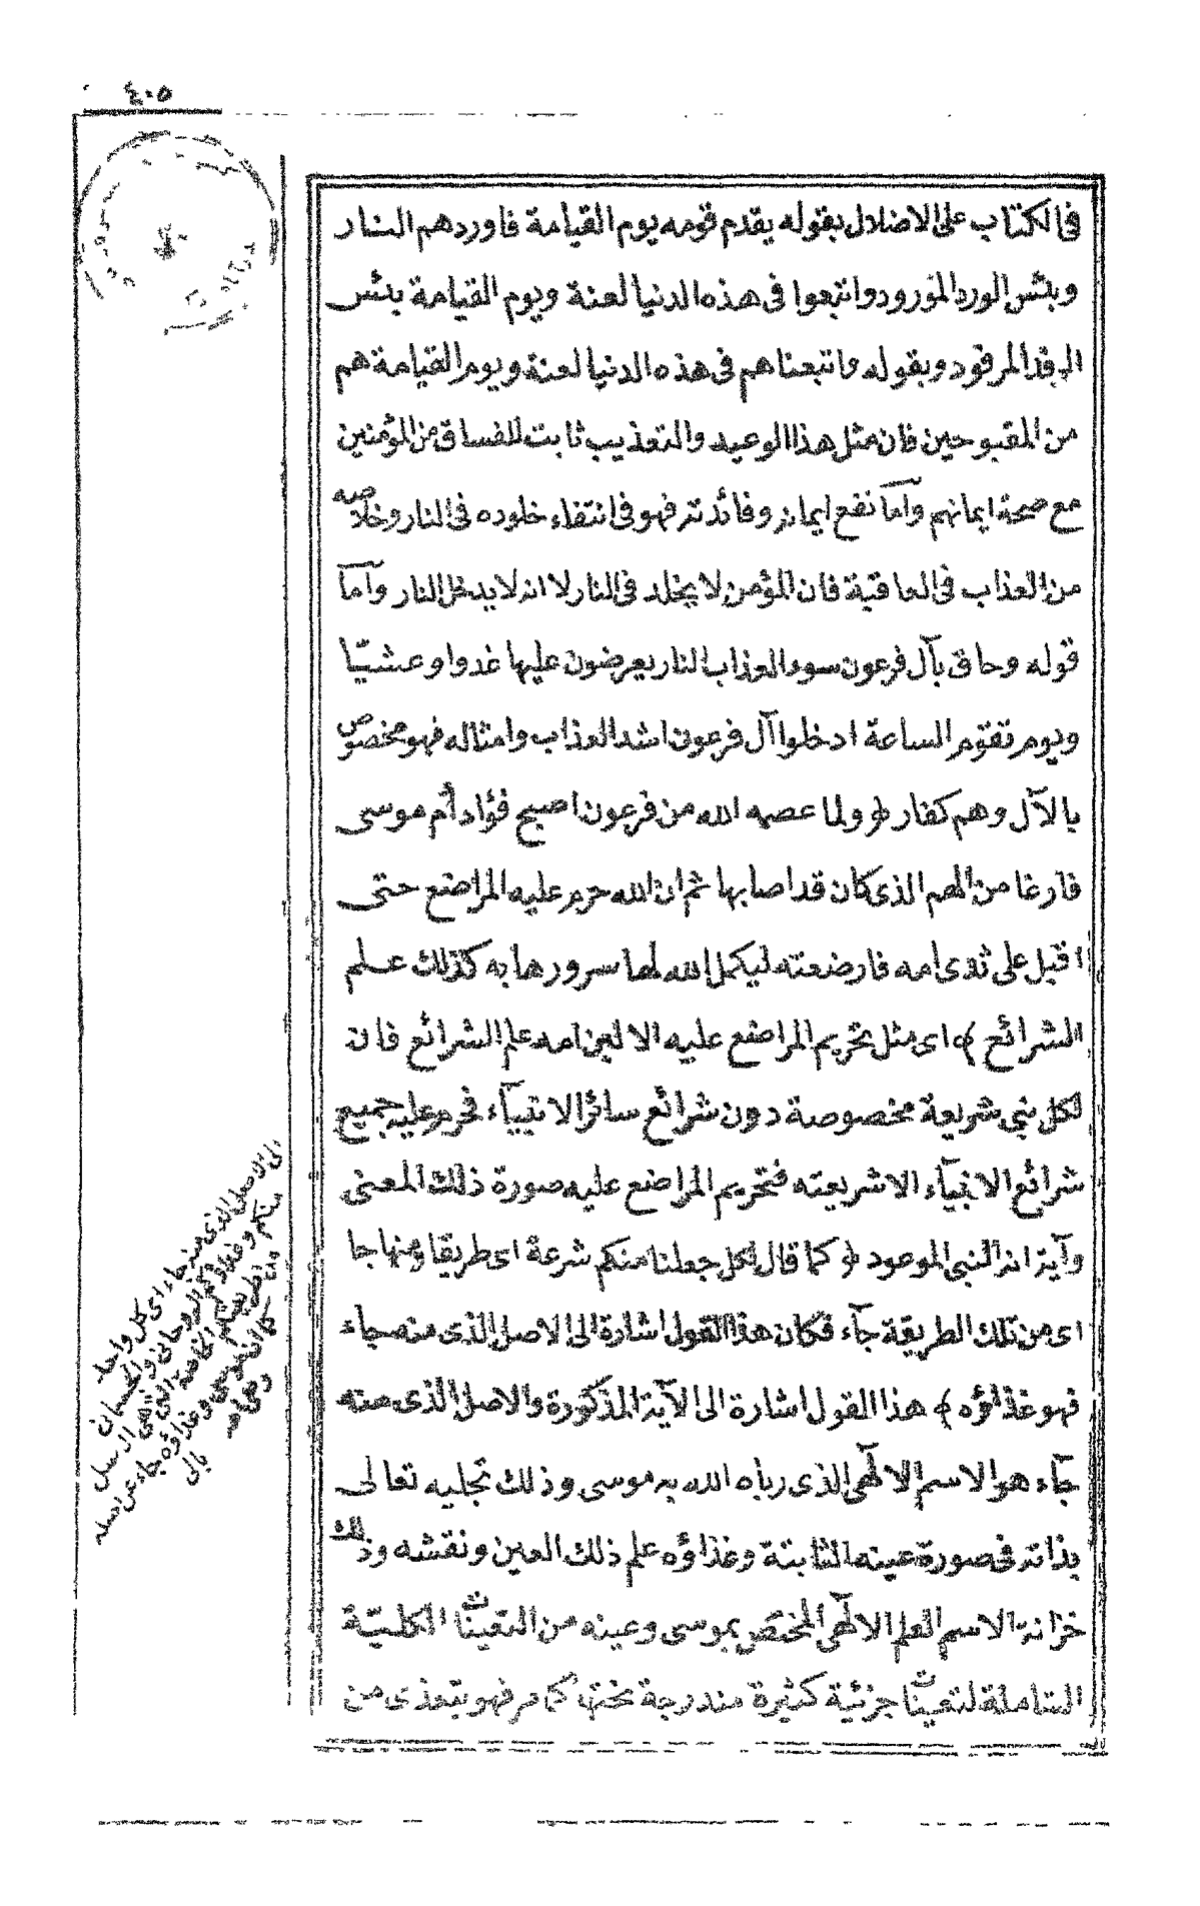 ٤٠٥
فى الكتاب على الاضلال بقوله يقدم قومه يوم القيامة فاوردهم النار
وبئس الورد المورود واتبعوا فى هذه الدنيا لعنة ويوم القيامة بئس
الرفد المرفود وبقوله واتبعناهم فى هذه الدنيا لعنة ويوم القيامة هم
من المقبوحين فان مثل هذا الوعيد والتعذيب ثابت للفساق من المؤمنين
مع صحة ايمانهم وآما نفع ايمانه وفائدته فهو فى انتفاء خلوده فى النار وخلاصه
من العذاب فى العاقبة فان المؤمن لا يخلد فى النار لا انه لا يدخل النار وآما
قوله وحاق بآل فرعون سوء العذاب النار يعرضون عليها غدوا وعشيّا
ويوم تقوم الساعة ادخلوا آل فرعون اشد العذاب وامثاله فهو مخصوص
بالآل وهم كفار ﴿ ولما عصمه الله من فرعون اصبح فؤاد اُم موسى
فارغا من الهم الذى كان قد اصابها ثم ان الله حرم عليه المراضع حتى
اقبل على ثدى امه فارضعته ليكمل الله لها سرورها به كذلك علم
الشرائع ﴾ اى مثل تحريم المراضع عليه الا لبن امه علم الشرائع فان
لكل نبى شريعة مخصوصة دون شرائع سائر الانبيآء فحرم عليه جميع
شرائع الانبيآء الا شريعته فتحريم المراضع عليه صورة ذلك المعنى
وآية انه النبى الموعود ﴿ كما قال لكل جعلنا منكم شرعة اى طريقا ومنهاجا
اى من تلك الطريقة جآء فكان هذا القول اشارة الى الاصل الذى منه جاء
فهو غذاؤه ﴾ هذا القول اشارة الى الآية المذكورة والاصل الذى منه
جآء هو الاسم الالٓهى الذى رباه الله به موسى وذلك تجليه تعالى
بذاته فى صورة عينه الثابتة وغذاؤه علم ذلك العين ونقشه وذلك
خزانة الاسم العلم الالٓهى المختص بموسى وعينه من التعينات الكليّة
الشاملة لتعينات جزئية كثيرة مندرجة تحتها كما مر فهو يتغذى من
الى الاصل الذى منه جاء اى كل واحد
منكم وغذاؤكم الروحانى والجسمانى